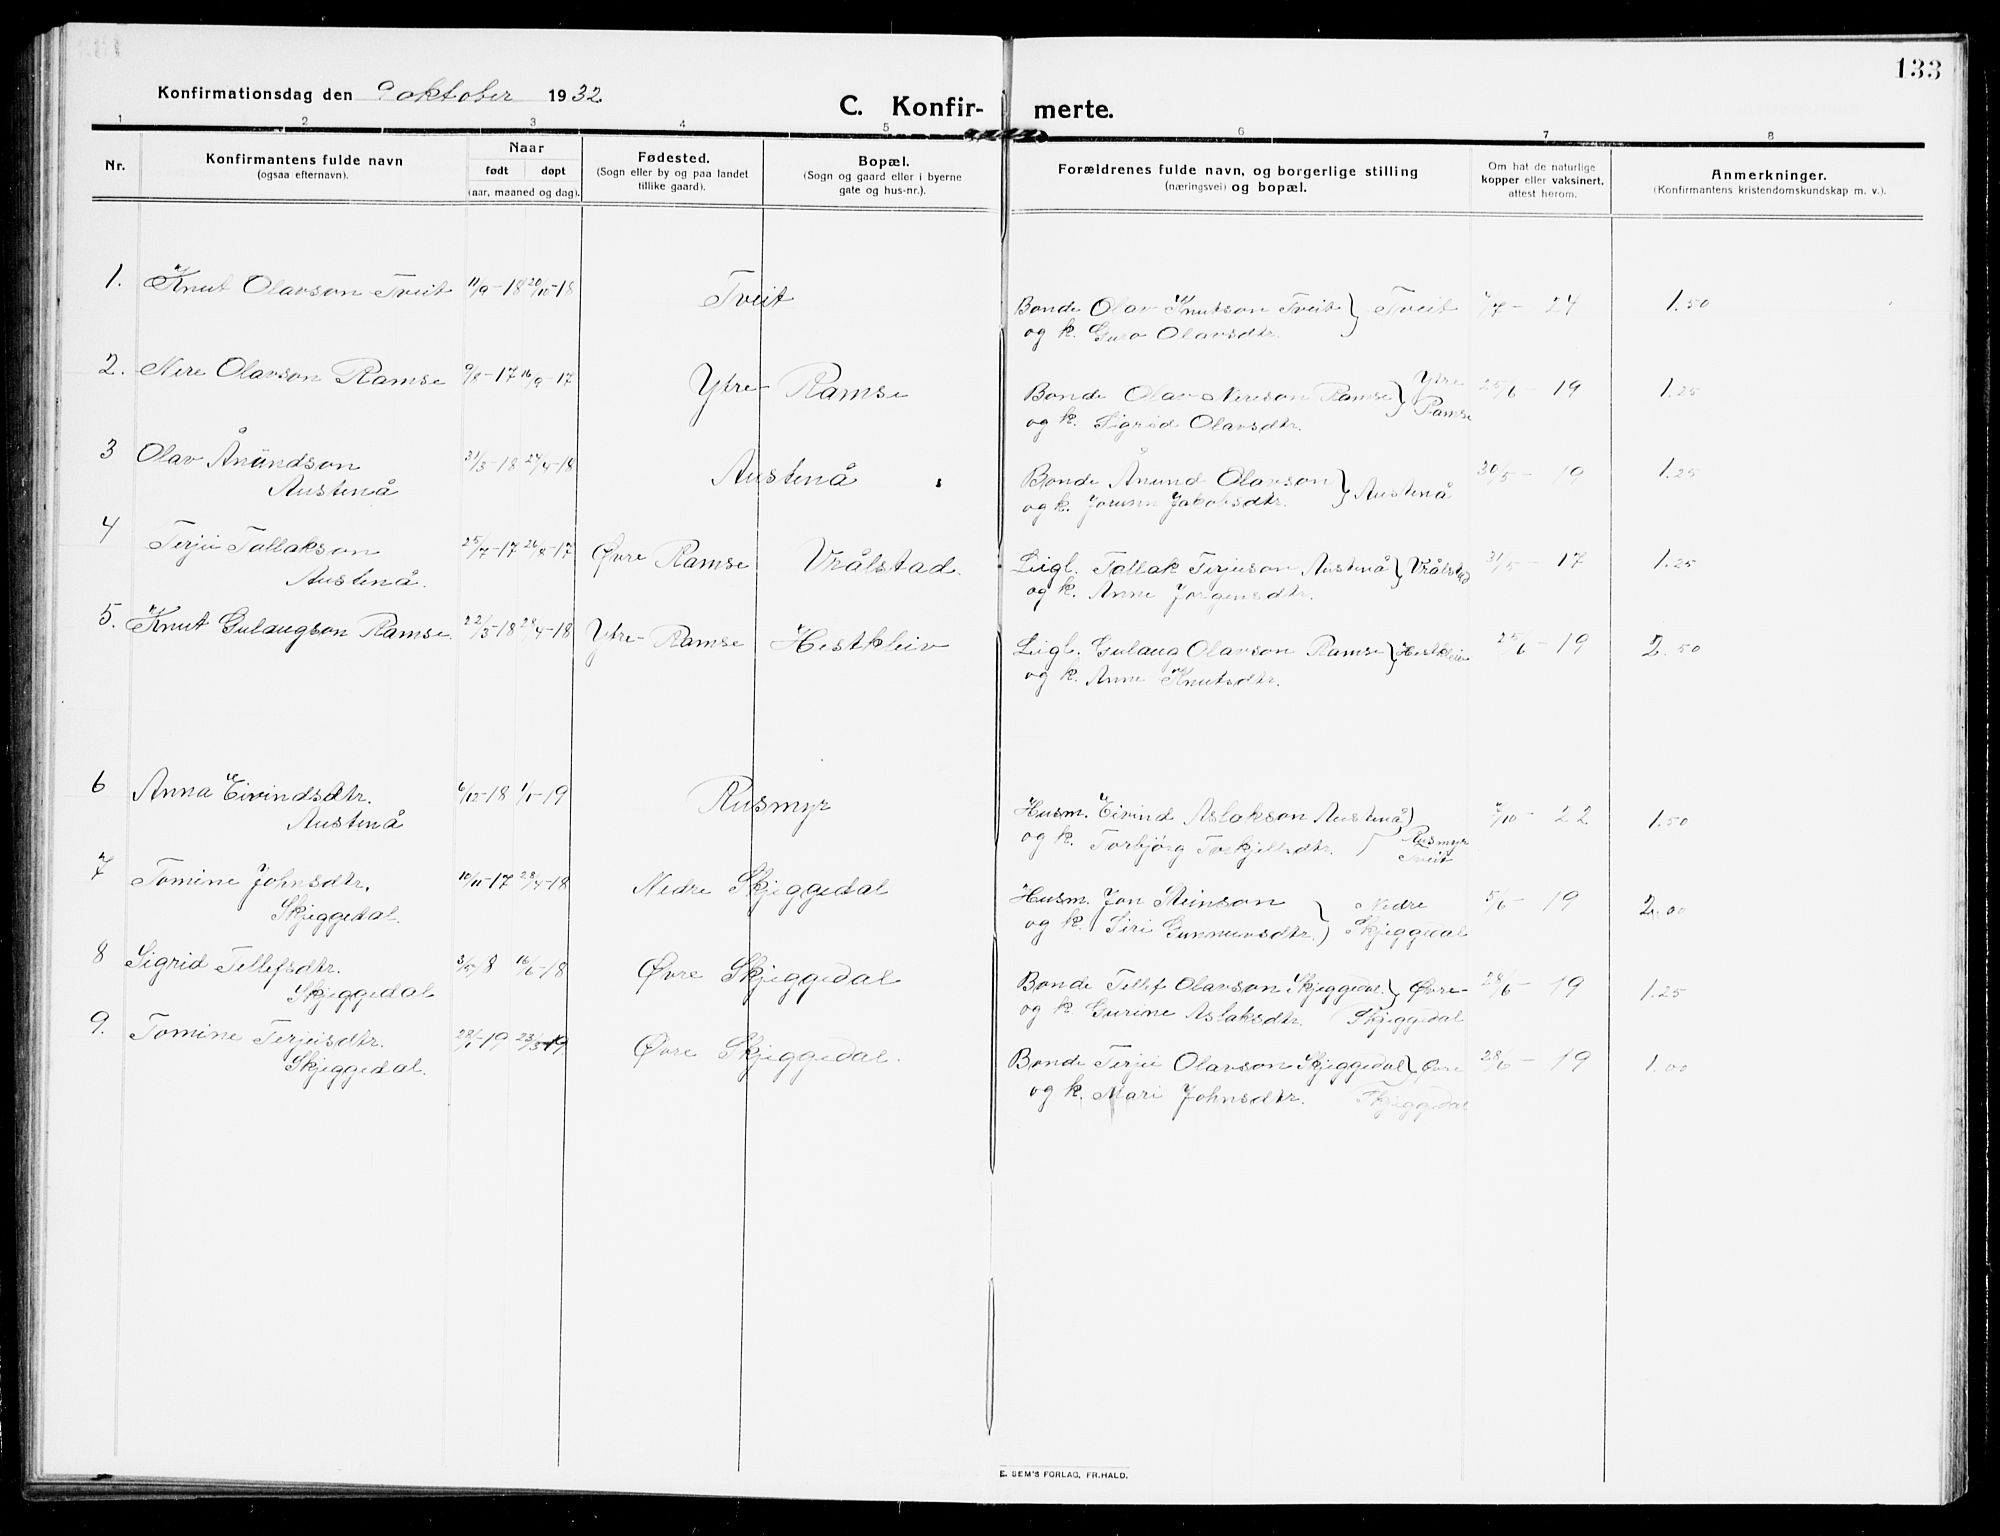 133
Konfirmationsdag den 9 oktober 1932
C. Konfir- merte.
1 2 3 4 5 6 7 8
Nr. Konfirmantens fulde navn (ogsaa efternavn). Naar født døpt (aar, maaned og dag). Fødested. (Sogn eller by og paa landet tillike gaard). Bopæl. (Sogn og gaard eller i byerne gate og hus-nr.). Forældrenes fulde navn, og borgerlige stilling (næringsvei) og bopæl. Om hat de naturlige kopper eller vaksinert, attest herom. Anmerkninger. (Konfirmantens kristendomskundskap m. v.).
1. Knut Olavson Tveit 11/9-18 20/10-18 Tveit Bonde Olav Knutson Tveit } Tveit /7 - 24 1.50
og k. Guro Olavsdtr.
2. Nere Olavson Ramse 9/8-17 16/9-17 Ytre- Ramse Bonde Olav Nereson Ramse } Ytre Ramse 25/6 - 19 1.25
og k. Sigrid Olavsdtr.
3 Olav Ånundson 31/3-18 24/4-18 Austenå Bonde Ånund Olavson } Austenå 30/5 - 19 1.25
Austenå og k. Jorunn Jakobsdtr.
4 Terjei Tallakson 25/7-17 26/8-17 Øvre Ramse Vrålstad. Leigl. Tallak Terjeison Austenå } Vrålstad 31/5 - 17 1.25
Austenå. og k. Anne Jørgensdtr.
5. Knut Gulaugson Ramse 22/3-18 28/4-18 Ytre- Ramse Hestkleiv Leigl. Gulaug Olavson Ramse } Hestkleiv 25/6 - 19 2.50
og k. Anne Knutsdtr.
6 Anna Eivindsdtr. 6/12-18 1/1-19 Rusmyr Husm. Eivind Aslakson Austenå } /10 - 22 1.50
Austenå og k. Torbjørg Torkjellsdtr. Rusmyr Tveit
7 Tomine Johnsdtr. 10/11-17 28/4-18 Nedre Skjeggedal Husm. Jon Steinson } Nedre 5/6 - 19 2.00
Skjeggedal. og k. Siri Gunnuvsdtr. Skjeggedal
8 Sigrid Tellefsdtr. 3/5 18 16/6-18 Øvre Skjeggedal Bonde Tellef Olavson Skjeggedal } Øvre- 28/6 - 19 1.25
Skjeggedal og k. Gurine Aslaksdtr. Skjeggedal
9. Tomine Terjeisdtr. 28/1-19 23/3-19 Øvre Skjeggedal. Bonde Terjei Olavson Skjeggedal } Øvre 28/6 - 19 1.00
Skjeggedal. og k. Mari Johnsdtr. Skjeggedal
E. SEM'S FORLAG, FR.HALD.